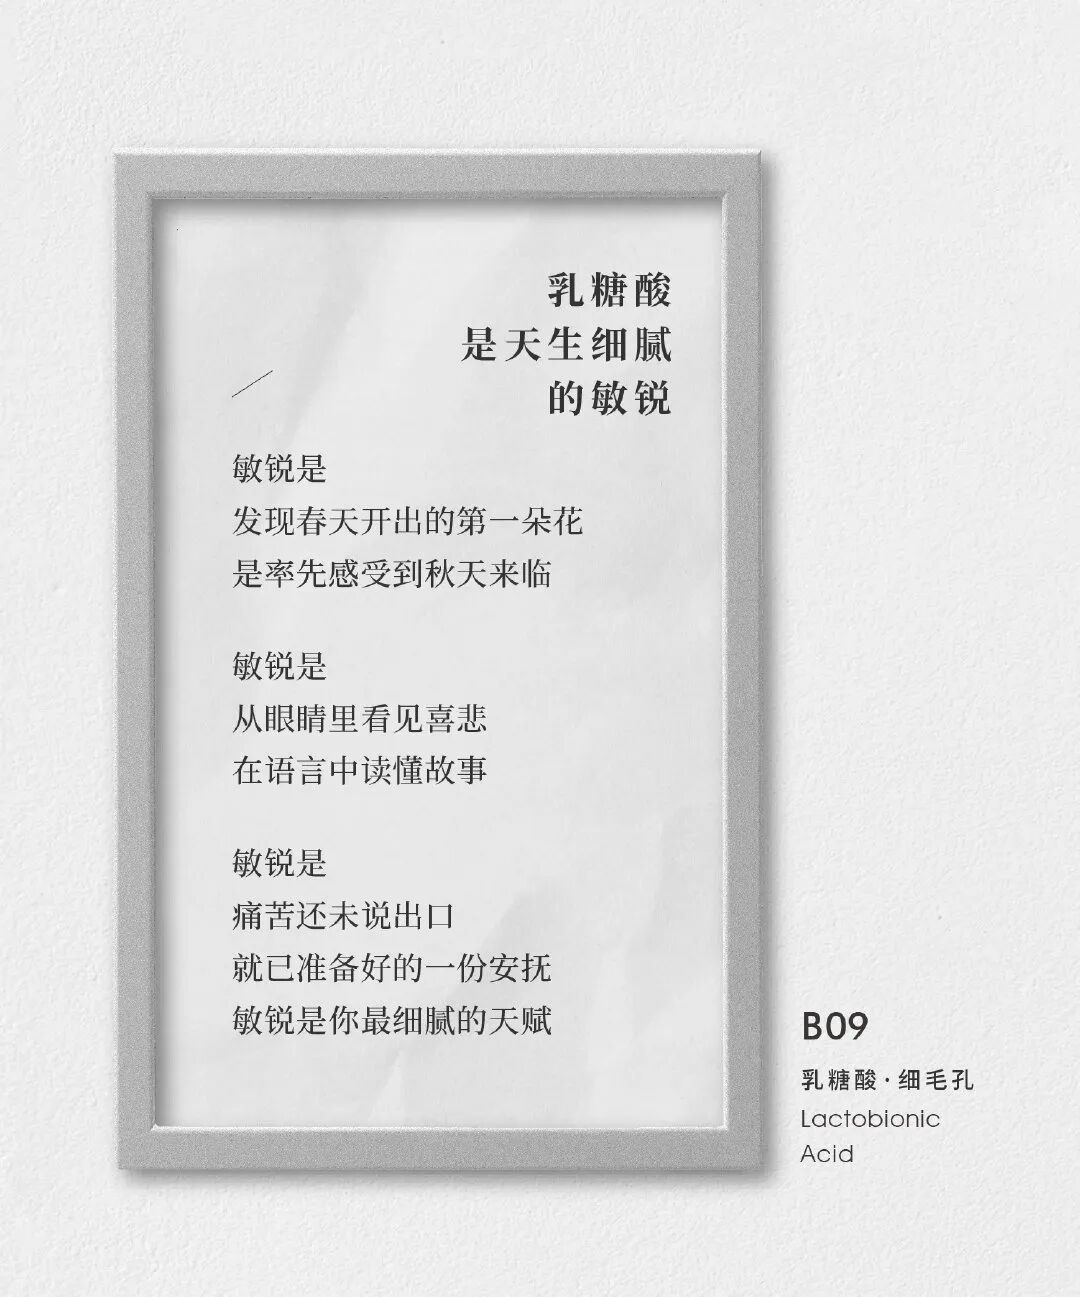 乳糖酸
是天生细腻
的敏锐
敏锐是
发现春天开出的第一朵花
是率先感受到秋天来临
敏锐是
从眼睛里看见喜悲
在语言中读懂故事
敏锐是
痛苦还未说出口
就已准备好的一份安抚
敏锐是你最细腻的天赋
B09
乳糖酸·细毛孔
Lactobionic
Acid